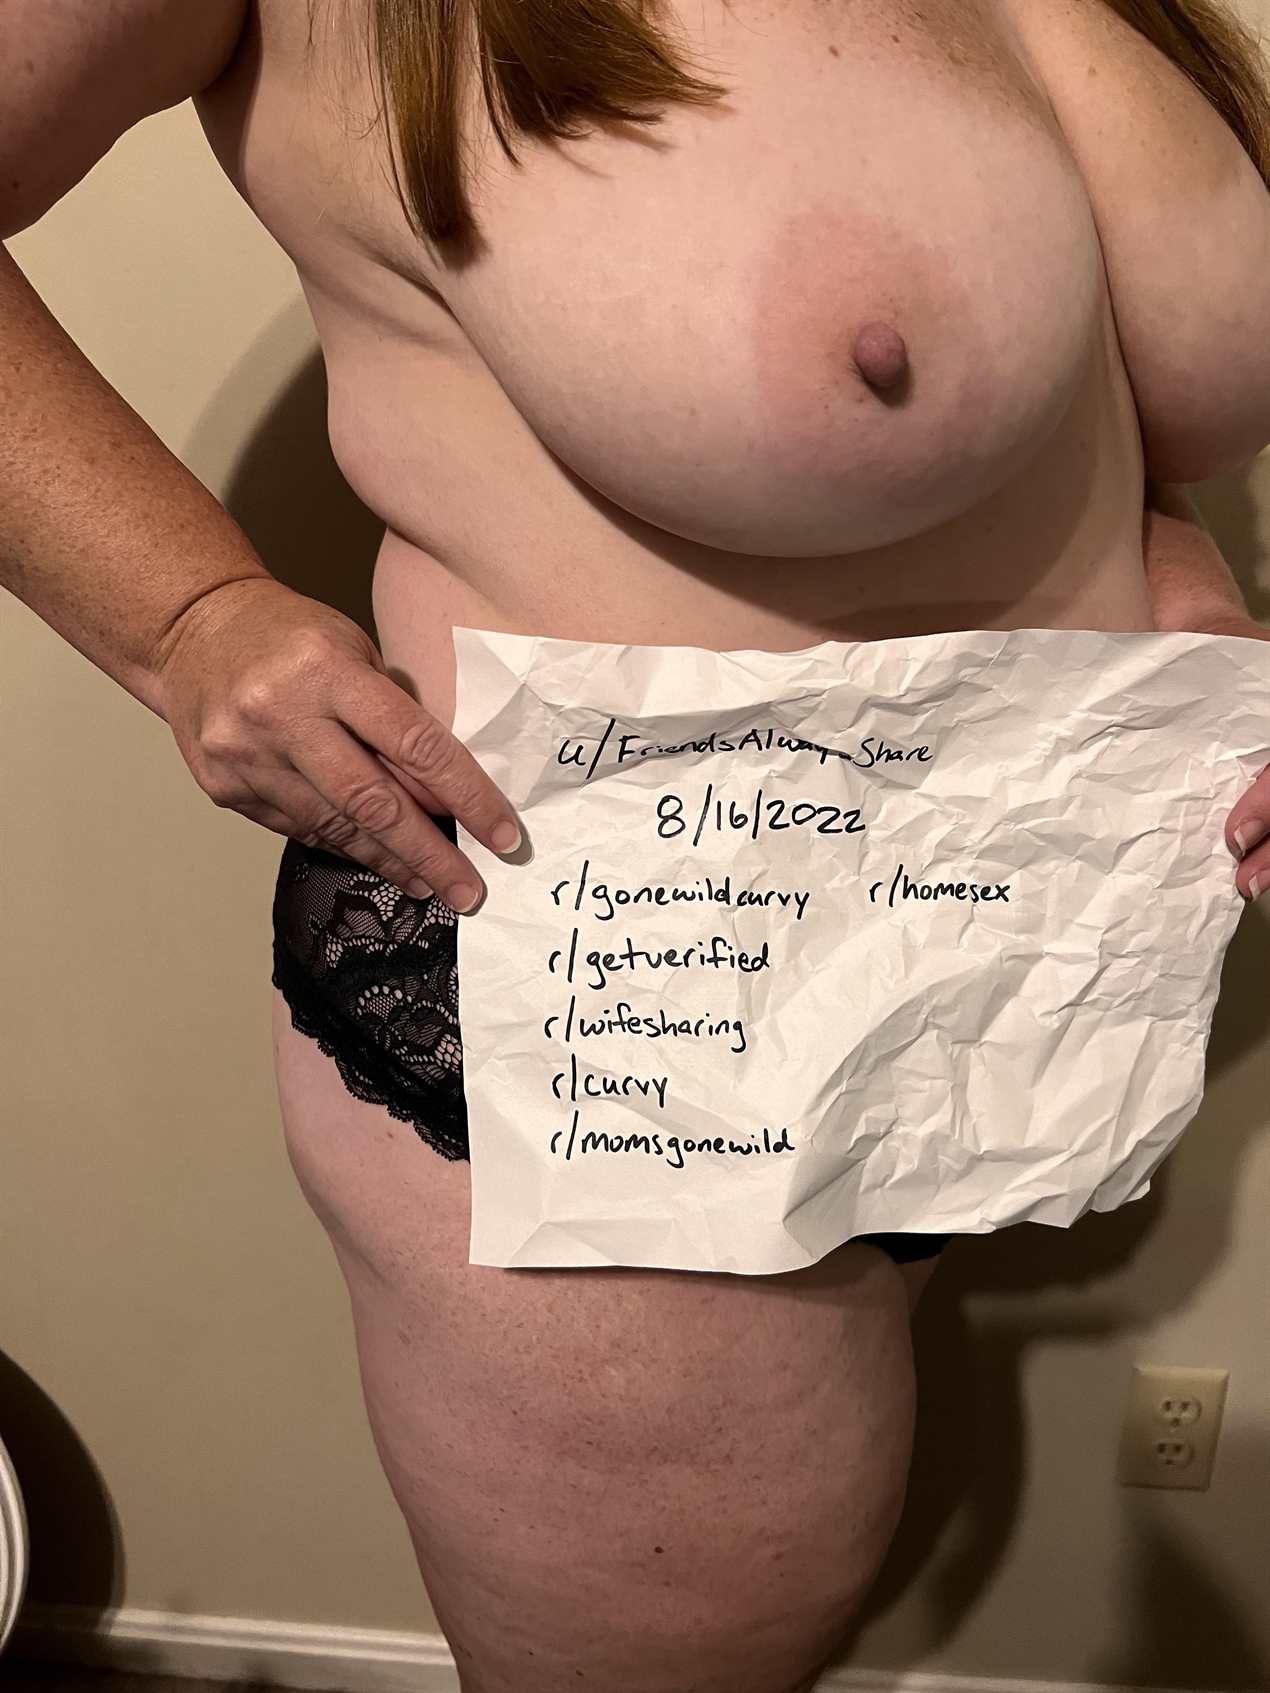 u/FriendsAlwaysShare
8/16/2022
r/gonewildcurvy r/homesex
r/getverified
r/wifesharing
r/curvy
r/momsgonewild